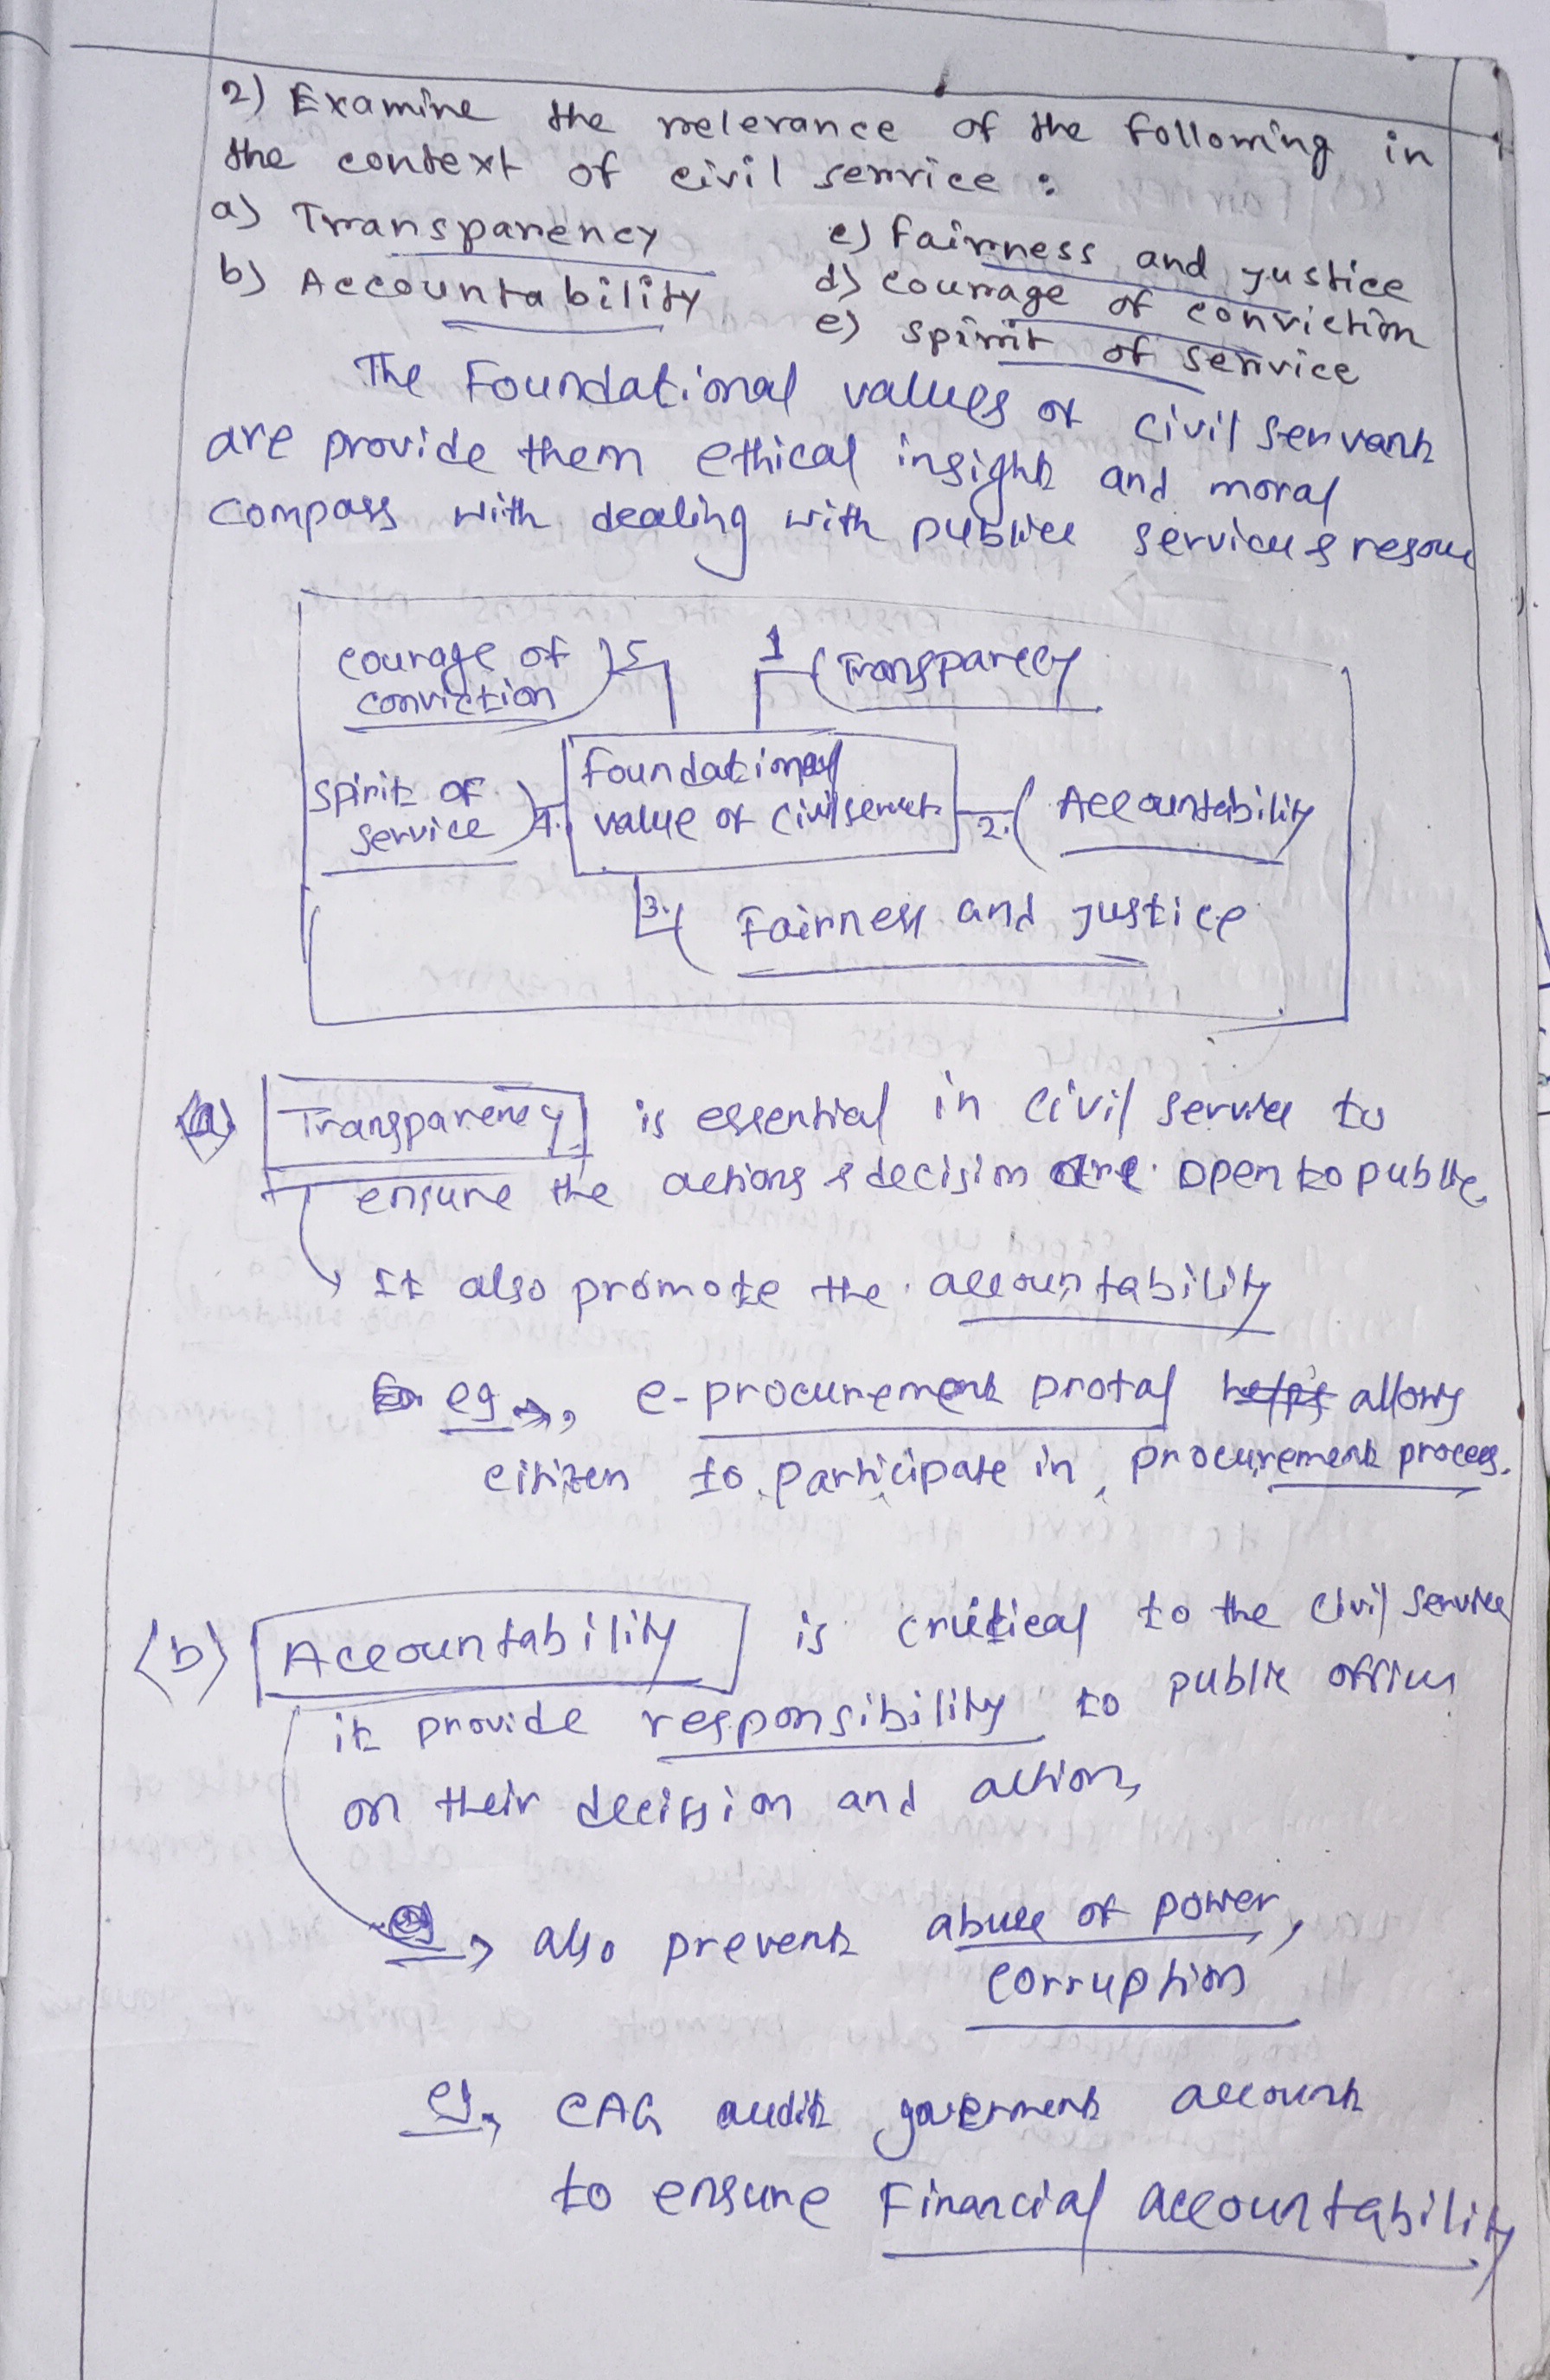 2) Examine the relevance of the following in
the context of civil service :
a) Transparency
b) Accountability
c) fairness and justice
d) courage of conviction
e) spirit of service
The Foundational values of civil servants
are provide them ethical insights and moral
compass with dealing with public services &
courage of conviction 5
1 Transparecy
spirit of service 4.
Foundational value of civil servants
2. Accountability
3. Fairness and justice
(a) Transparency is essential in civil service to
ensure the actions & decision are open to public
It also promote the accountability
eg → e-procurement protal helps allows
citizen to participate in procurement process.
(b) Accountability is critical to the civil service
it provide responsibility to public offices
on their decission and actions
→ also prevents abuse of power,
corruption
eg, CAG audits government accounts
to ensure Financial accountability